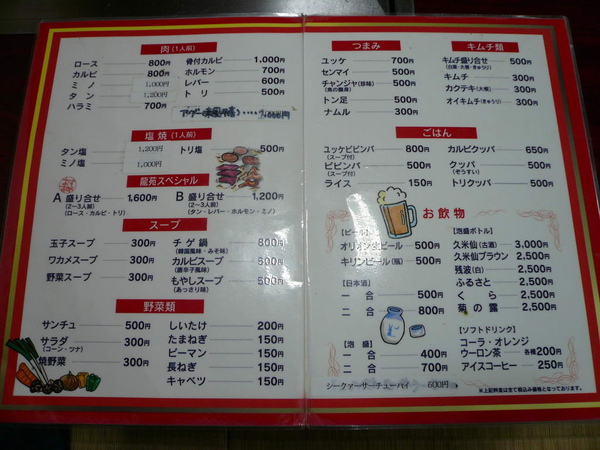 肉(1人前)
ロース 800円
カルビ 800円
ミノ 1,000円
タン 1,200円
ハラミ 700円
骨付カルビ 1,000円
ホルモン 700円
レバー 600円
トリ 500円
塩焼(1人前)
タン塩 1,200円
ミノ塩 1,000円
トリ塩 500円
龍苑スペシャル
A 盛り合せ 1,600円
(2〜3人前)
(ロース・カルビ・トリ)
B 盛り合せ 1,200円
(2〜3人前)
(タン・レバー・ホルモン・ミノ)
スープ
玉子スープ 300円
ワカメスープ 300円
野菜スープ 300円
チゲ鍋 800円
(韓国風味・みそ味)
カルビスープ 800円
(唐辛子風味)
もやしスープ 500円
(あっさり味)
野菜類
サンチュ 500円
サラダ 300円
(コーン・ツナ)
焼野菜 300円
しいたけ 200円
たまねぎ 150円
ピーマン 150円
長ねぎ 150円
キャベツ 150円
つまみ
ユッケ 700円
センマイ 500円
チャンジャ(珍味) 500円
トン足 500円
ナムル 300円
キムチ類
キムチ盛り合せ 500円
(白菜・大根・きゅうり)
キムチ 300円
カクテキ(大根) 300円
オイキムチ(きゅうり) 300円
ごはん
ユッケビビンバ 800円
(スープ付)
ビビンバ 500円
(スープ付)
ライス 150円
カルビクッパ 650円
クッパ 500円
(ぞうすい)
トリクッパ 500円
お飲物
【ビール】
オリオン生ビール 500円
キリンビール(瓶) 500円
【日本酒】
一合 500円
二合 800円
【泡盛】
一合 400円
二合 700円
シークァーサーチューハイ 600円
【泡盛ボトル】
久米仙(古酒) 3,000円
久米仙ブラウン 2,500円
残波(白) 2,500円
ふるさと 2,500円
くら 2,500円
菊の露 2,500円
【ソフトドリンク】
コーラ・オレンジ
ウーロン茶 各種200円
アイスコーヒー 250円
※上記料金は全て税込み価格となっております。